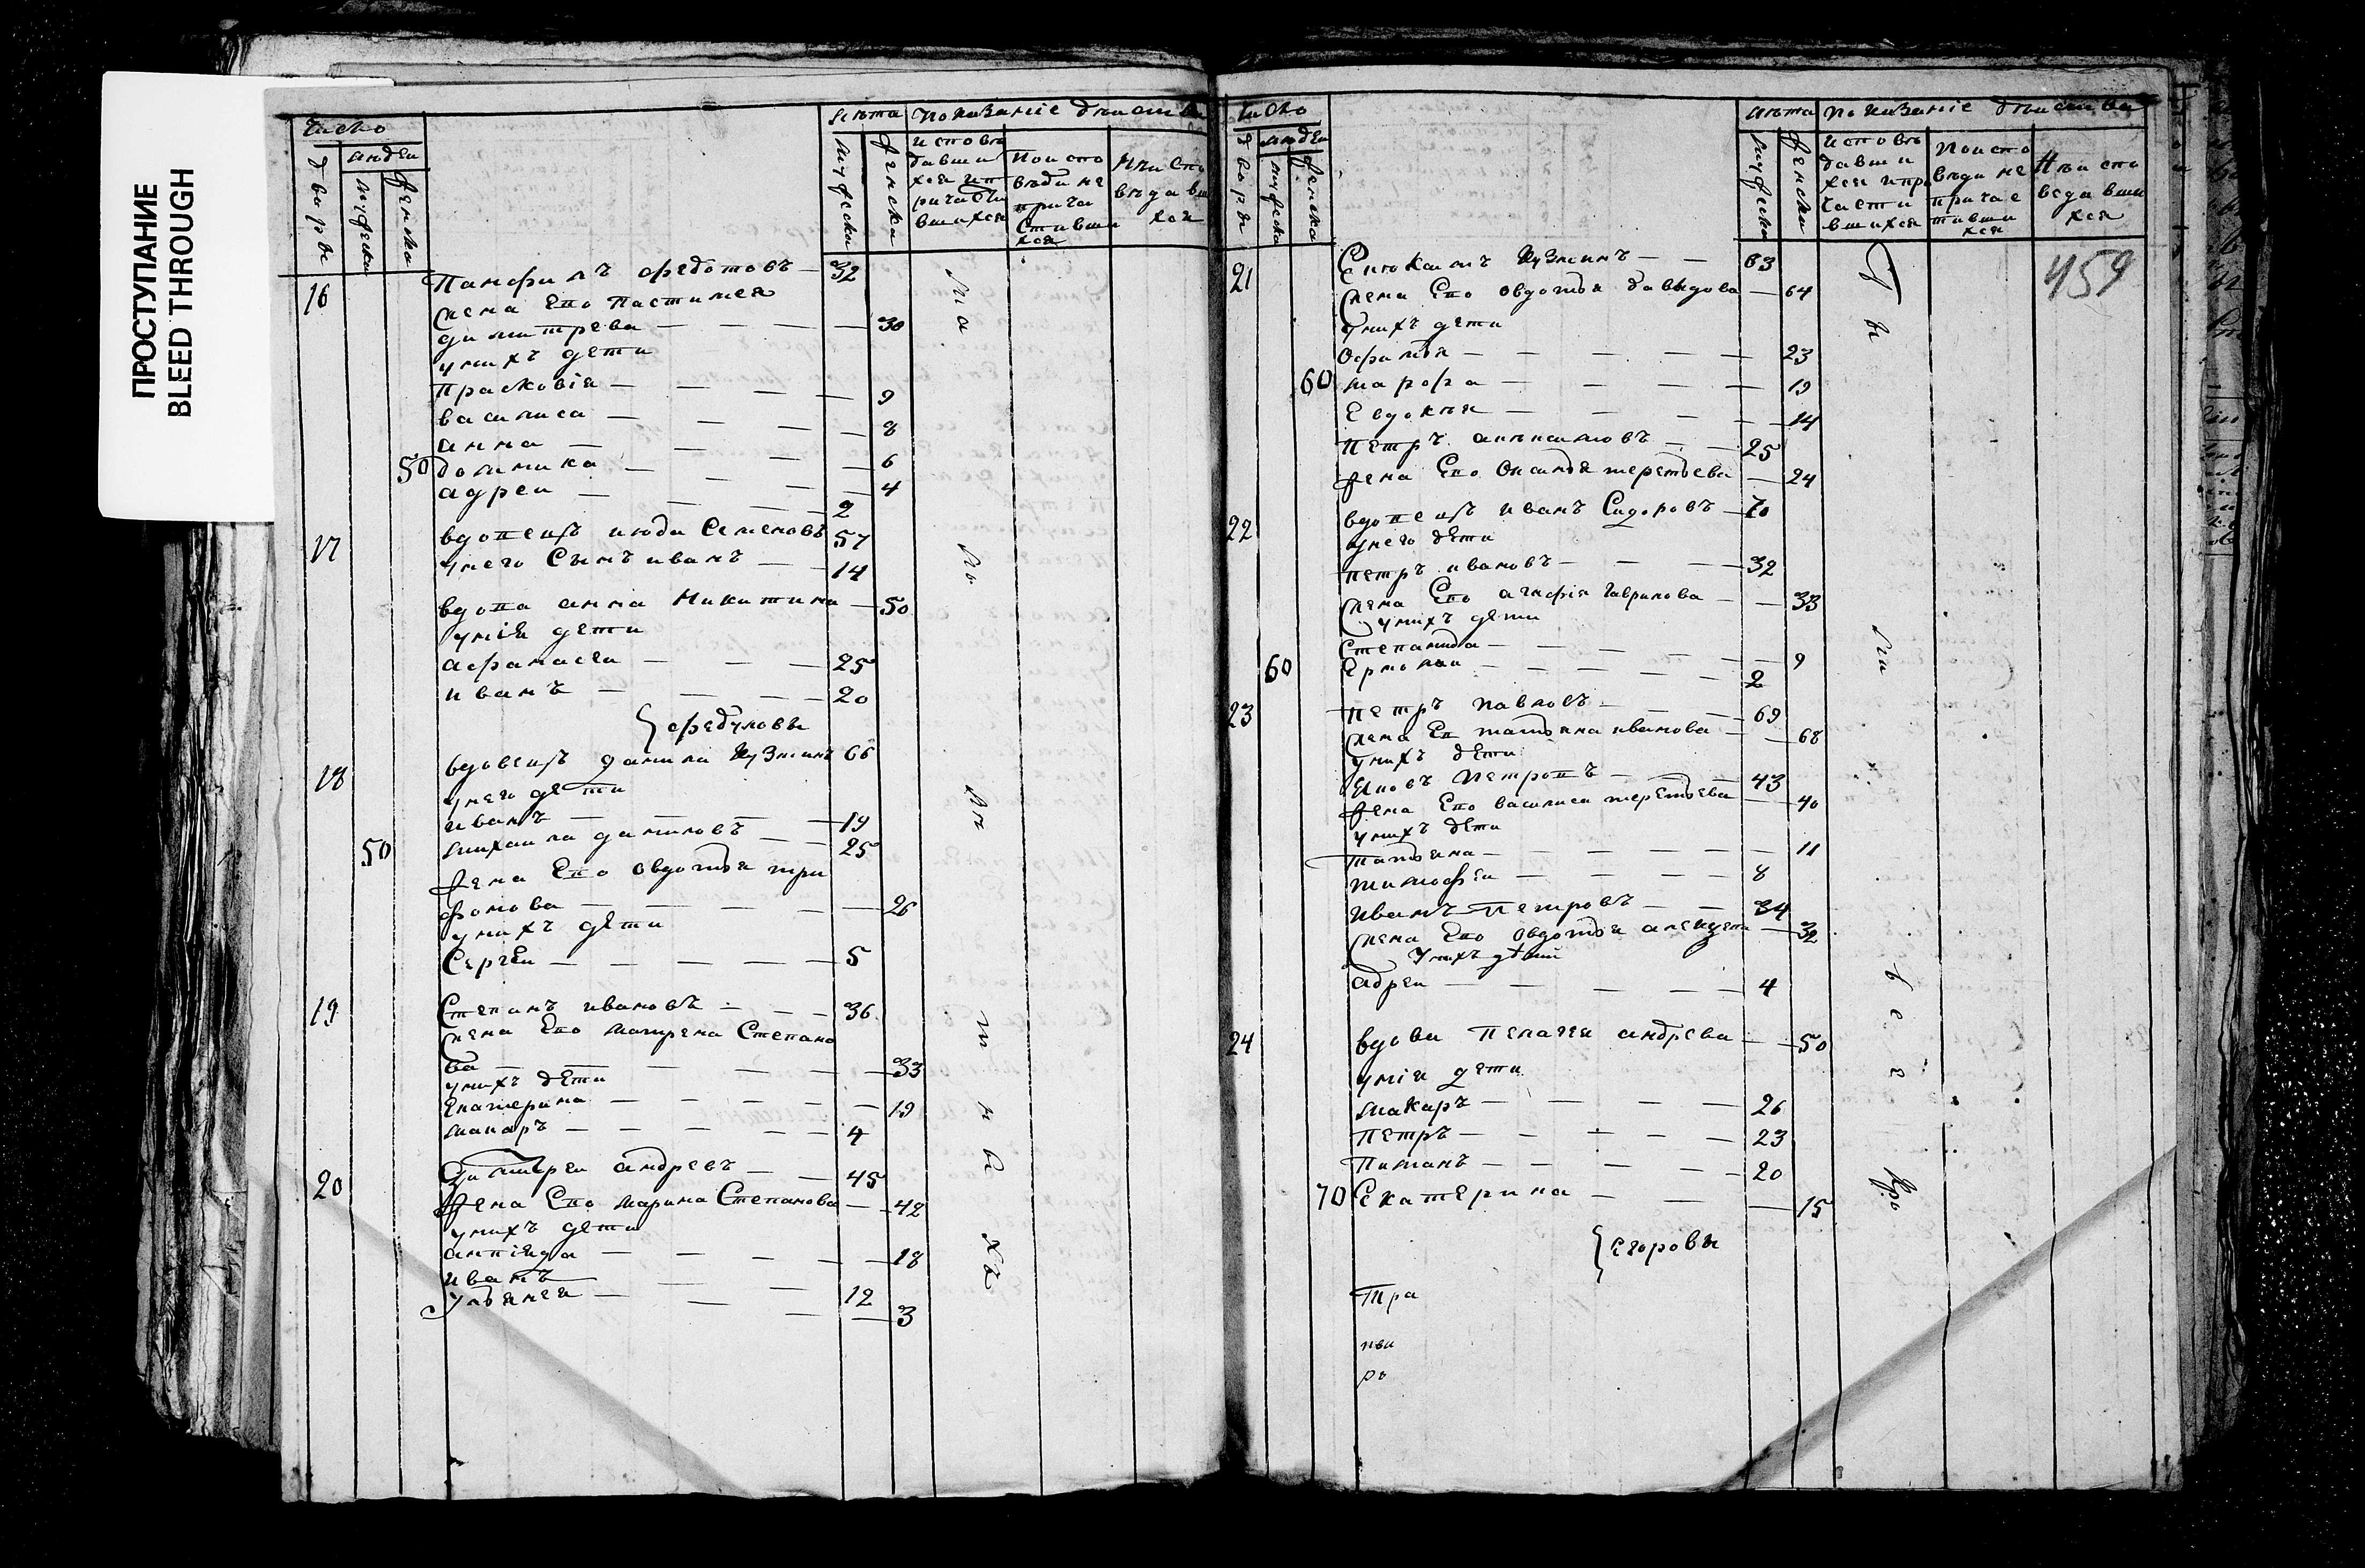 ПРОСТУПАНИЕ
BLEED THROUGH
Число
людеи
дворы
мужеска
женска
лѣта
мужеска
женска
показаніе дѣиства
исповѣ
давши
хся и п
ричасти
вшихся
По испо
вѣди не
прича
стивши
хся
Неиспо
вѣдавши
хся
16 Панфилъ Федотовъ — 32
жена Его Пастимея
димитрева — — — 30
унихъ дети
Прасковія — — — 9
василиса — — — 8
анна — — — 6
50 домника — — — 4
адреи — — — 2
17 вдовецъ июда Семеновъ 57
унего Сынъ иванъ — — 14
вдова анна Никитина — 50
унія дети
афанасеи — — — 25
иванъ — — — 20
{ федуловы
18 вдовецъ данила Кузминъ 66
унего дети
иванъ — — — 19
50 михаила даниловъ — — 25
жена Его овдотя три
фонова — — — 26
унихъ дети
Сергеи — — — 5
19 Степанъ ивановъ — — 36
жена Его матрена Степано
ва — — — 33
унихъ дети
Екатерина — — — 19
макаръ — — — 4
20 Димитреи андревъ — — 45
жена Его марина Степанова — 42
унихъ дети
— — — 18
иванъ — — — 12
Ульянея — — — 3
число
людеи
дворы
мужеска
женска
лѣта
мужеска
женска
показаніе дѣиства
исповѣ
давши
хся и при
части
вшихся
По испо
вѣди не
причас
тивши
хся
Неиспо
ведавши
хся
459
21 Кузминъ — — 63
жена Его овдотя давыдова — 64
унихъ дети
офимя — — — 23
60 марфа — — — 19
Евдокея — — — 14
Петръ — — 25
жена Его терентьева — 24
22 вдовецъ иванъ Сидоровъ — 70
унего дети
петръ ивановъ — — — 32
жена Его агафія гаврилова — 33
унихъ дети
Степанида — — — 9
60 Ермолаи — — — 2
23 петръ павловъ — — — 69
жена Ег татьяна иванова — 68
унихъ дети
яковъ Петровъ — — — 43
жена Его василиса терентьева — 40
унихъ дети
татьяна — — — 11
тимофеи — — — 8
иванъ Петровъ — — 34
жена Его овдотя — 32
унихъ дѣтии
адреи — — — 4
24 вдова Пелагея андрева — 50
унія дети
макаръ — — — 26
Петръ — — — 23
— — — 20
70 Екатерина — — — 15
{ егоровы